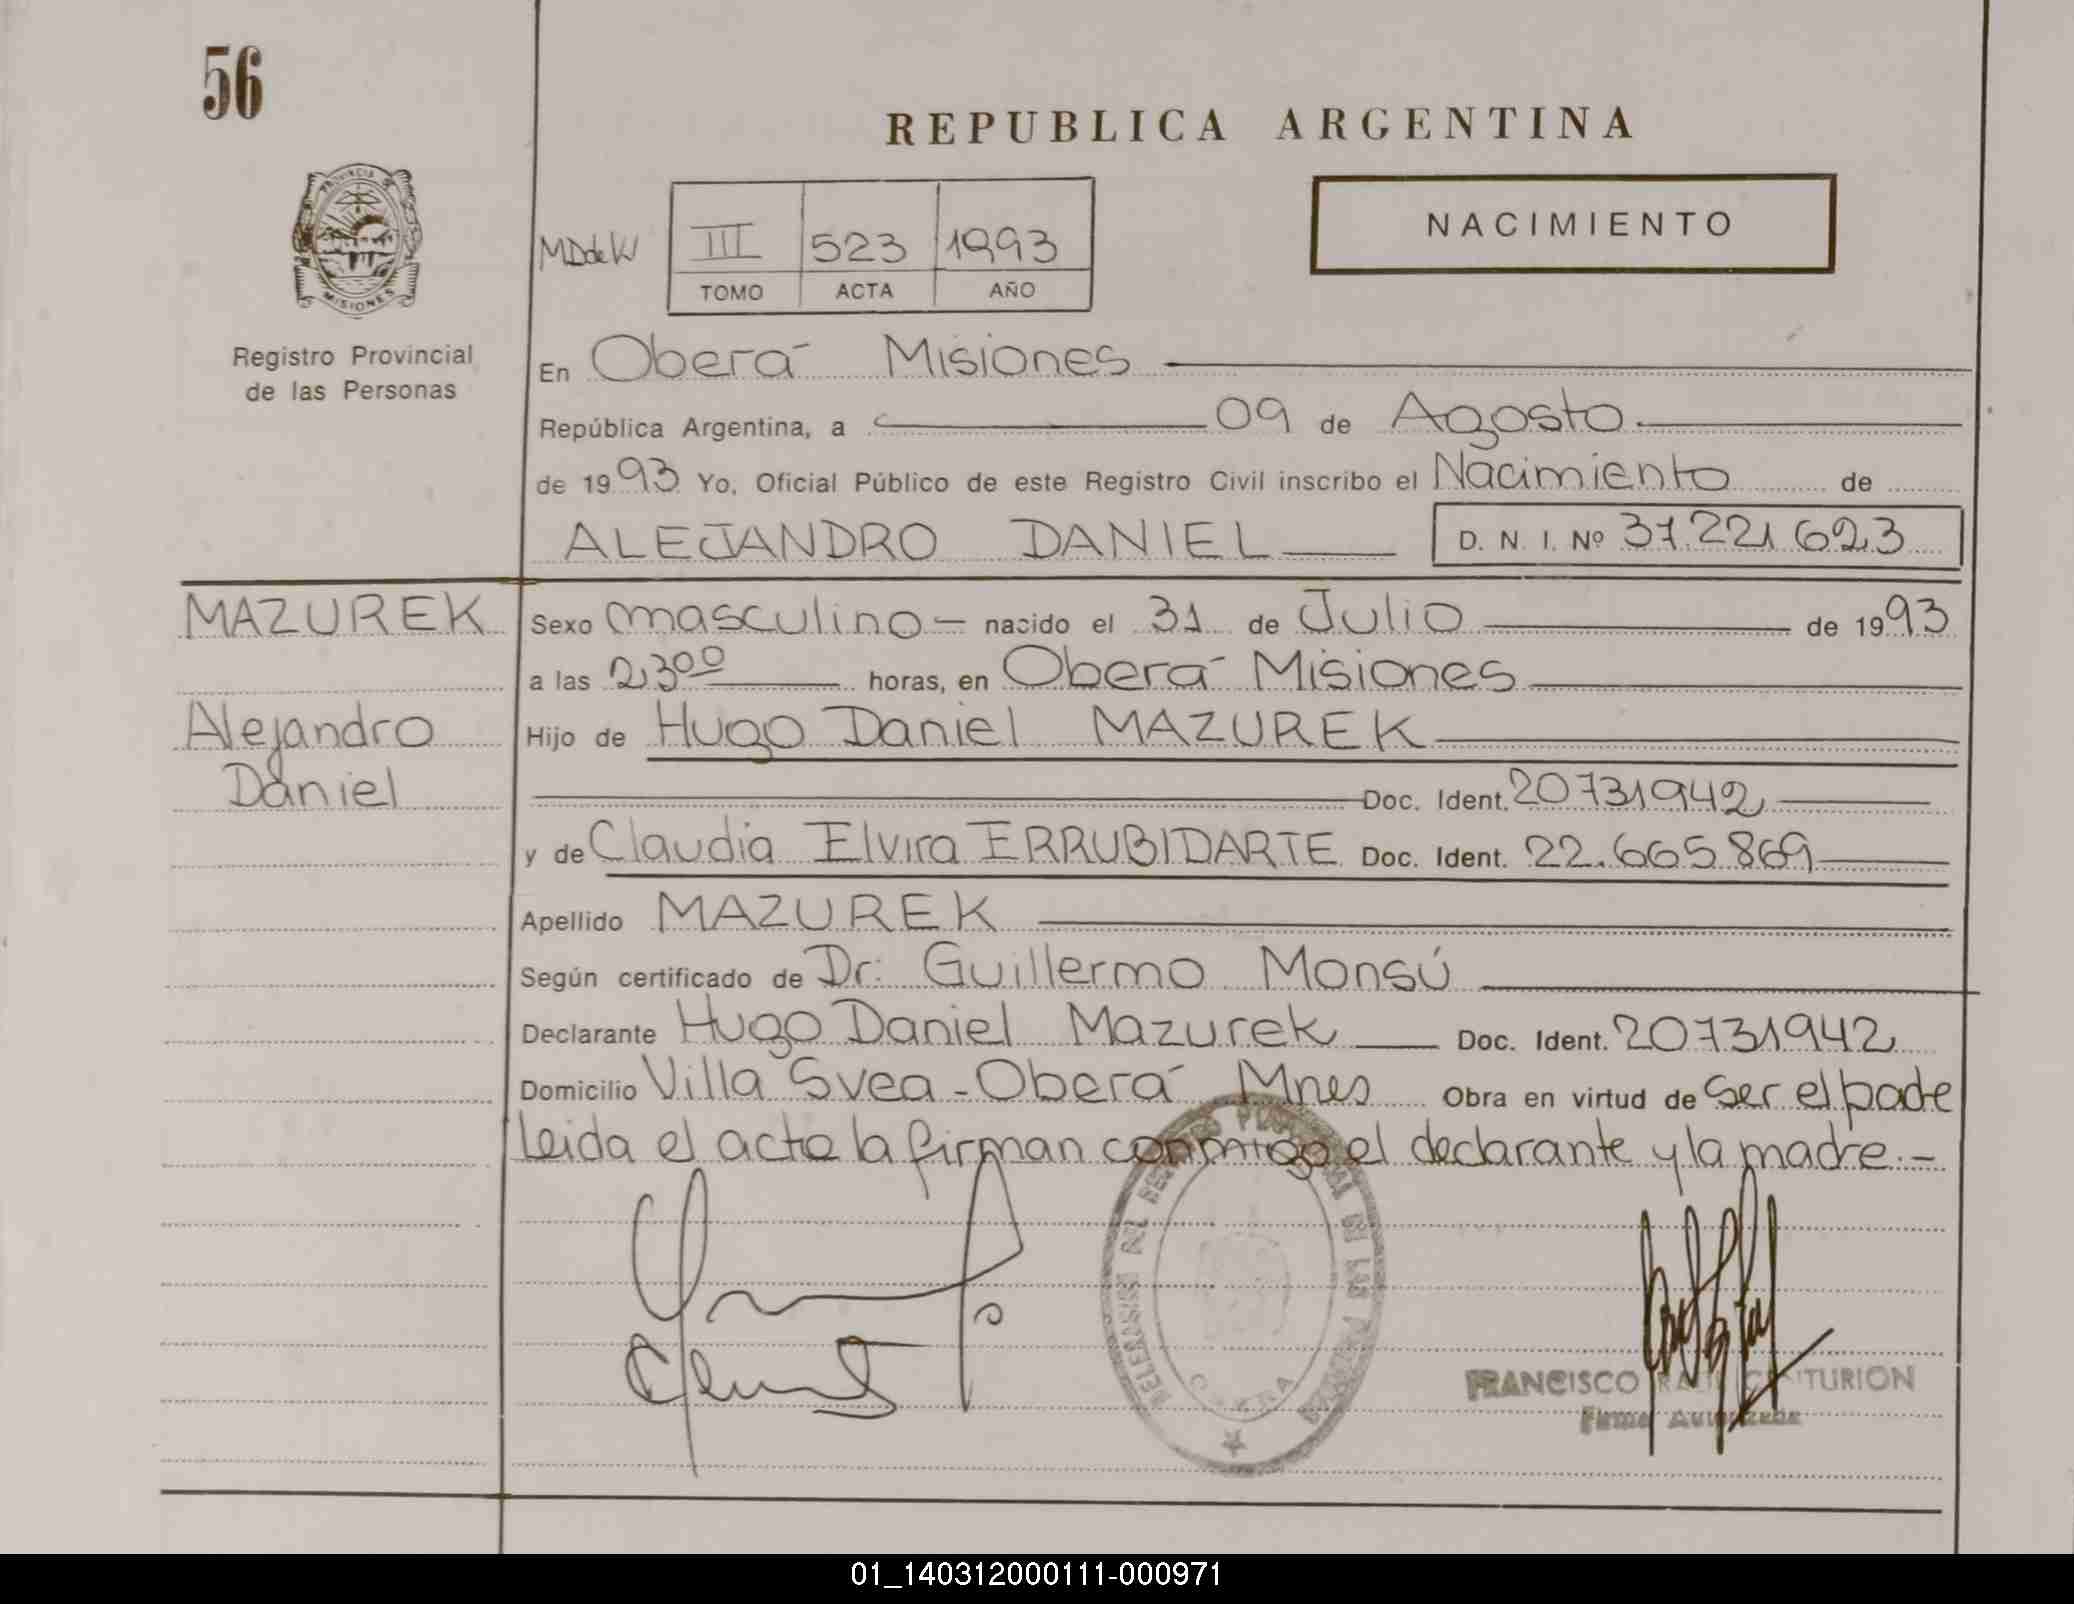 56
REPUBLICA ARGENTINA
NACIMIENTO
PROVINCIA DE
MISIONES
Registro Provincial
de las Personas
MDdeK
III 523 1993
TOMO ACTA AÑO
En Oberá Misiones
República Argentina, a 09 de Agosto
de 1993 Yo, Oficial Público de este Registro Civil inscribo el Nacimiento de
ALEJANDRO DANIEL D. N. I. Nº 37.221.623
MAZUREK
Alejandro
Daniel
Sexo masculino - nacido el 31 de Julio de 1993
a las 2,30º horas, en Oberá Misiones
Hijo de Hugo Daniel MAZUREK
Doc. Ident. 20731942
y de Claudia Elvira ERRUBIDARTE Doc. Ident. 22.665.869
Apellido MAZUREK
Según certificado de Dr: Guillermo Monsú
Declarante Hugo Daniel Mazurek Doc. Ident. 20731942
Domicilio Villa Svea - Oberá Mnes Obra en virtud de ser el padre
leida el acta la firman conmigo el declarante y la madre.-
DEL REGISTRO DE LAS
OBERA
FRANCISCO CENTURION
Firma Autorizada
01_140312000111-000971